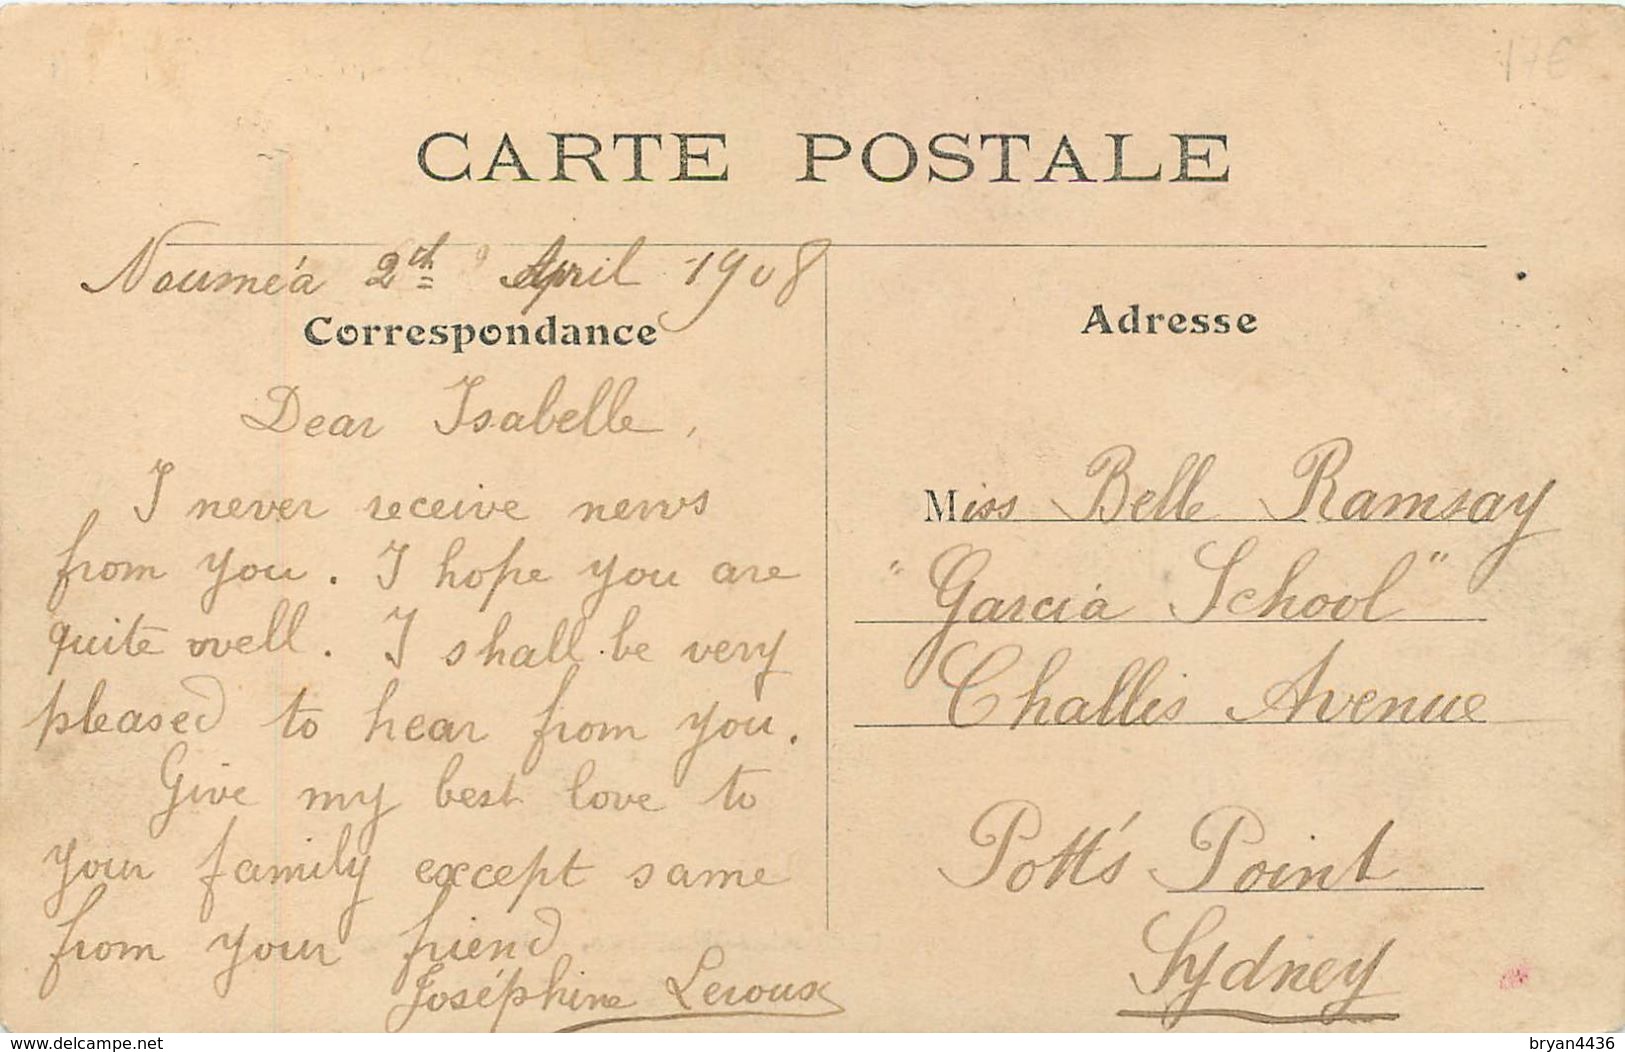 17€
CARTE POSTALE
Nouméa 2th April 1908
Correspondance
Dear Isabelle,
I never receive news
from you. I hope you are
quite well. I shall be very
pleased to hear from you.
Give my best love to
your family except same
from your friend
Joséphine Leroux
Adresse
Miss Belle Ramsay
"Garcia School"
Challis Avenue
Pott's Point
Sydney
www.delcampe.net
bryan4436